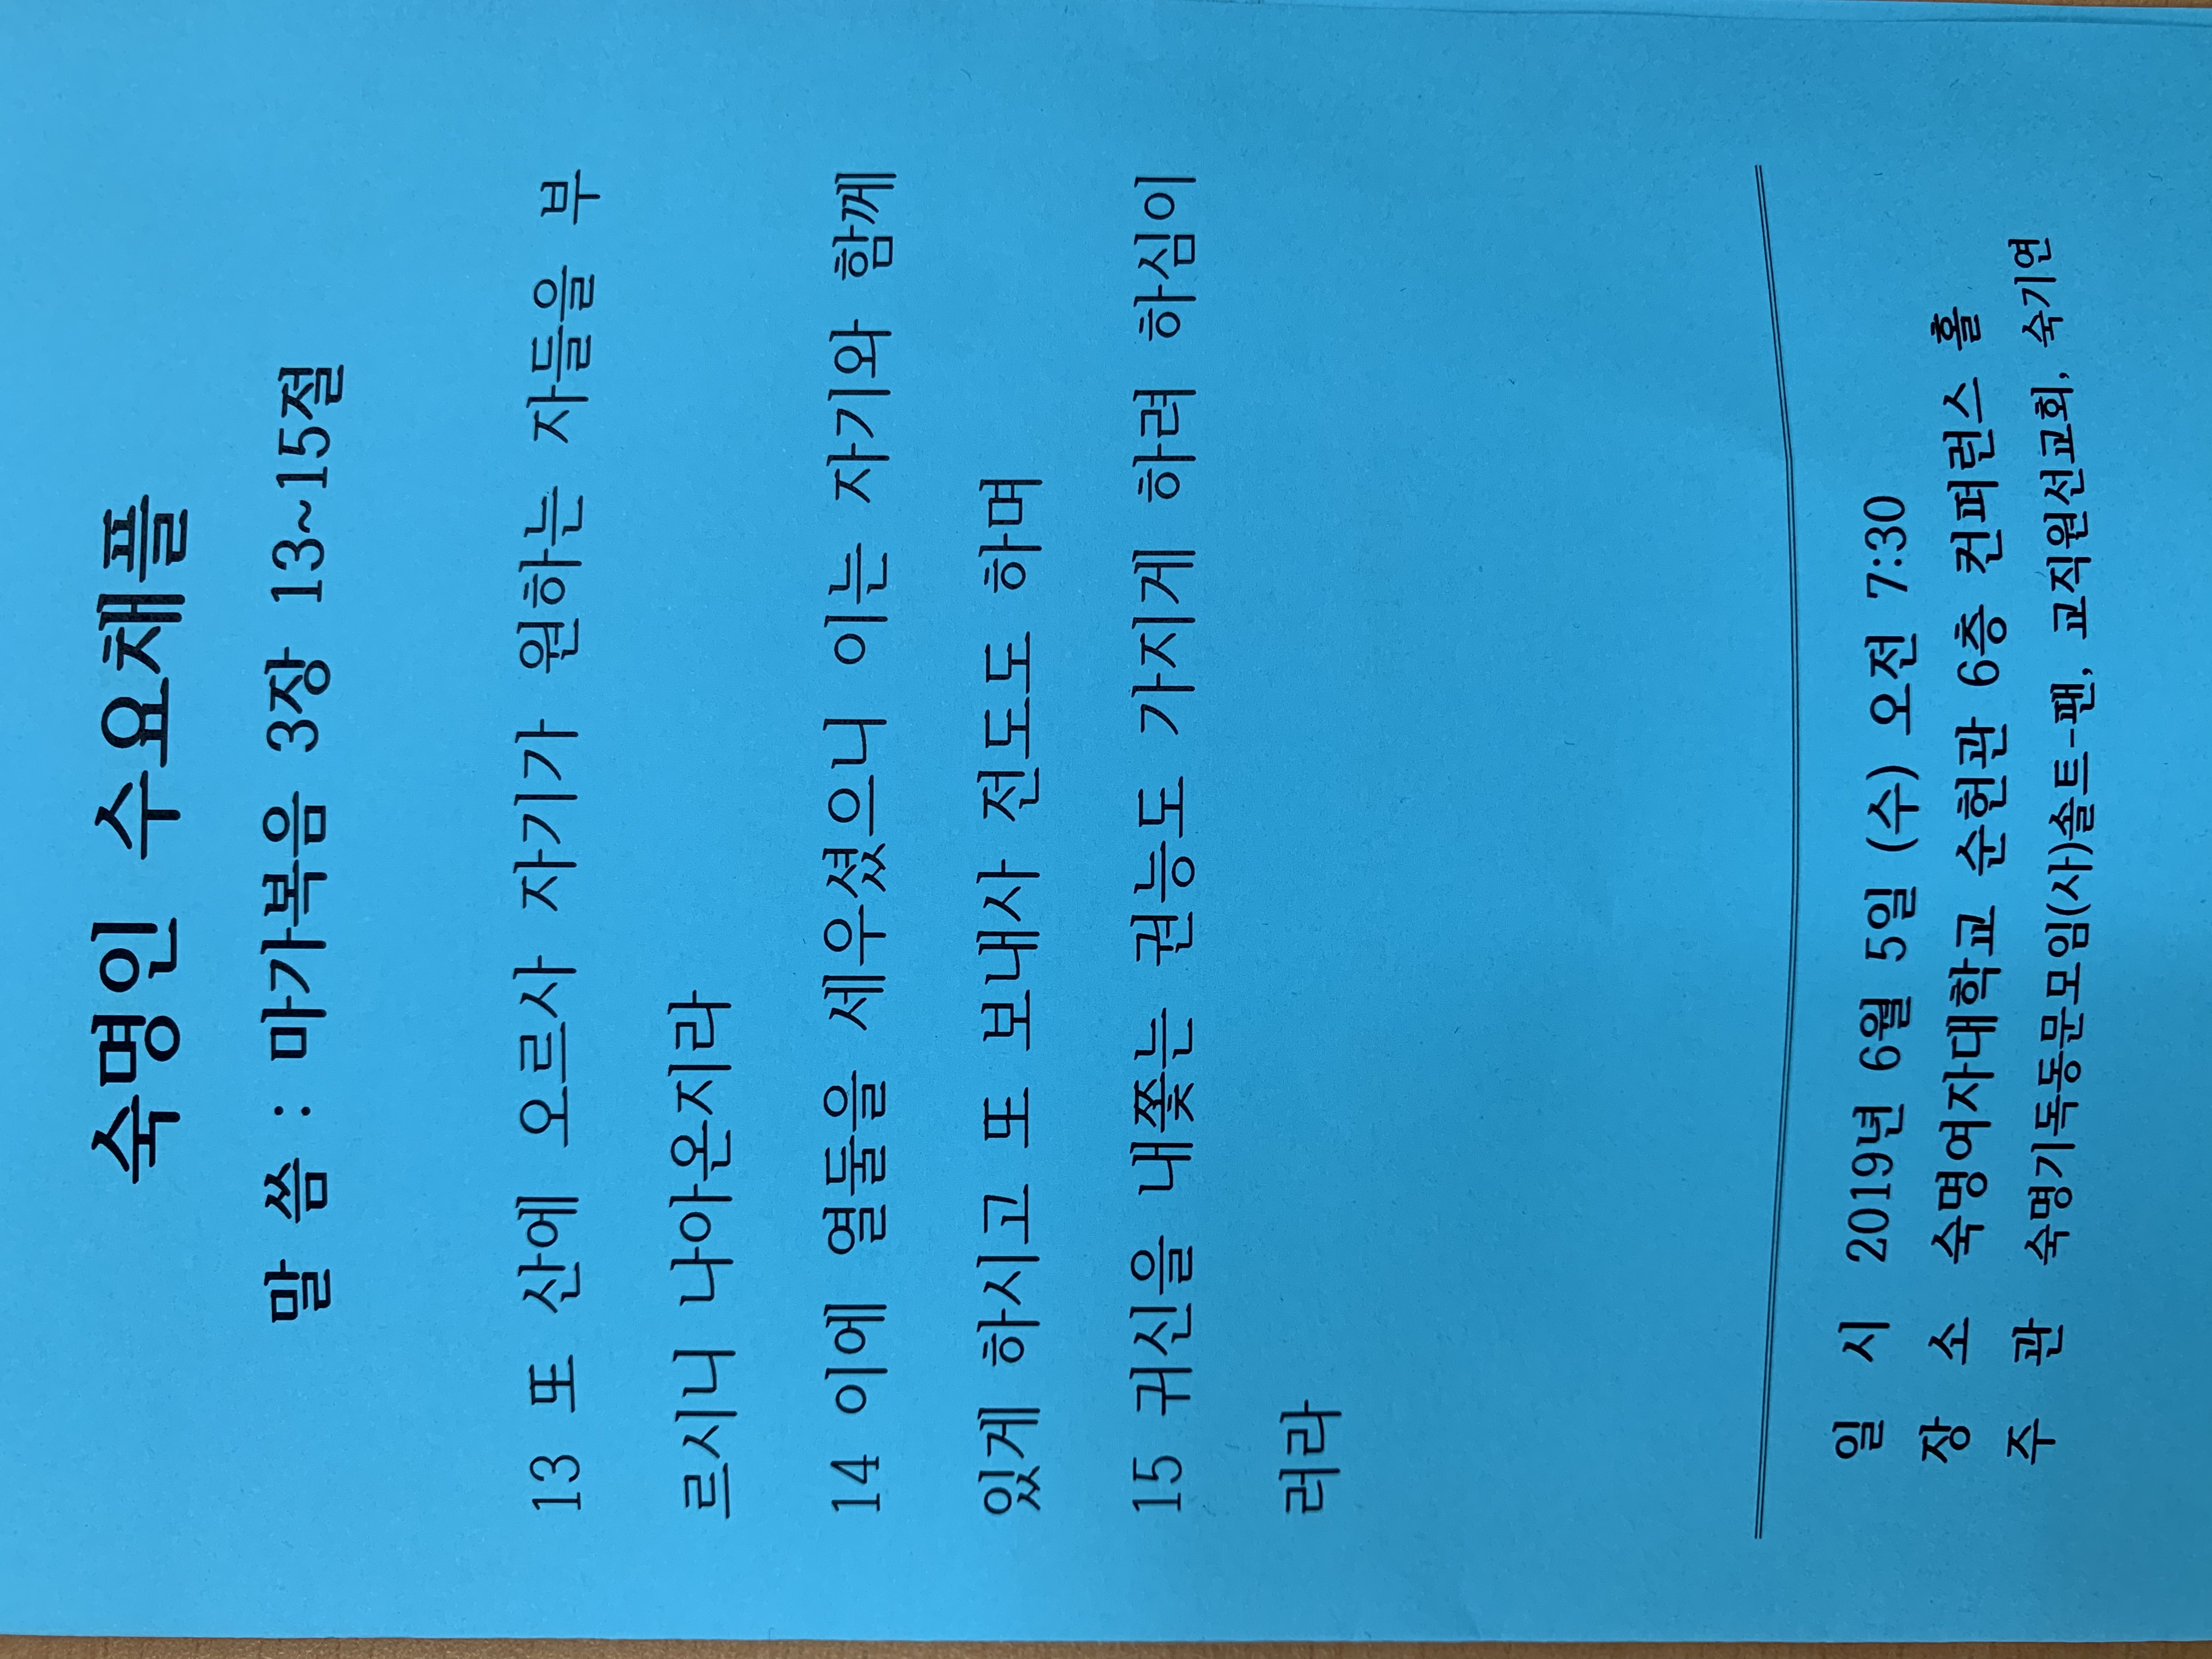 숙명인 수요채플
말 씀 : 마가복음 3장 13~15절
13 또 산에 오르사 자기가 원하는 자들을 부
르시니 나아온지라
14 이에 열둘을 세우셨으니 이는 자기와 함께
있게 하시고 또 보내사 전도도 하며
15 귀신을 내쫓는 권능도 가지게 하려 하심이
러라
일 시 2019년 6월 5일 (수) 오전 7:30
장 소 숙명여자대학교 순헌관 6층 컨퍼런스 홀
주 관 숙명기독동문모임(사)솔트-팬, 교직원선교회, 숙기연